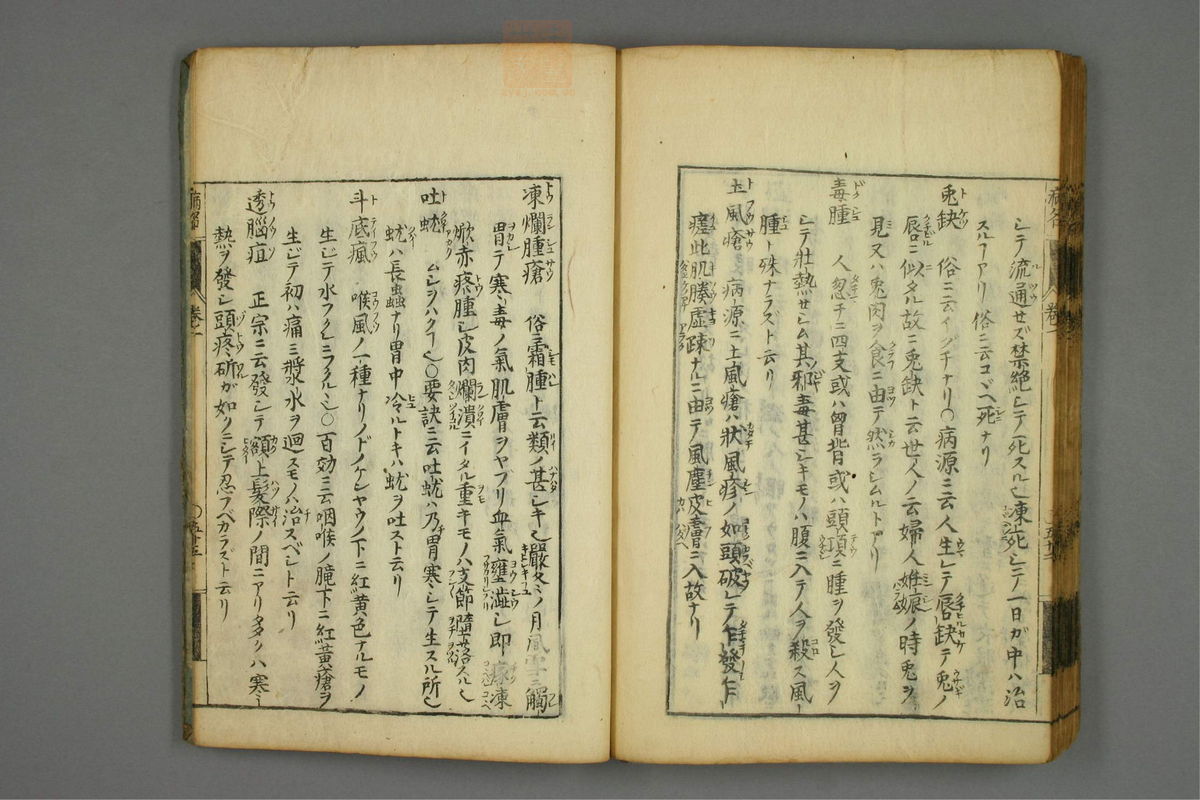 シテ流通セズ禁絶シテ死スル也凍死シテ一日ガ中ハ治
スルアリ俗ニ云コヾヘ死ナリ
兎缺 俗ニ云イグチナリ○病源ニ云人生レテ唇缺テ兎ノ
唇ニ似タル故ニ兎缺ト云世人ノ云婦人妊娠ノ時兎ヲ
見又ハ兎肉ヲ食ニ由テ然ラシムルトアリ
毒腫 人忽チニ四支或ハ胷背或ハ頭項ニ腫ヲ發シ人ヲ
シテ壮熱セシム其邪毒甚シキモノハ腹ニ入テ人ヲ殺ス風
腫ト殊ナラズト云リ
土風瘡 病源ニ土風瘡ハ狀風疹ノ如頭破レテ乍發乍
瘥此肌腠虚疎ナルニ由テ風塵皮膚ニ入故ナリ
凍爛腫瘡 俗ニ霜腫ト云類ノ甚シキ也嚴冬ノ月風雪ニ觸
冒テ寒毒ノ氣肌膚ヲヤブリ血氣壅澁シ即瘃凍
焮赤疼腫シ皮肉爛潰ニイタル重キモノハ支節墮落スル也
吐蚘 ムシヲハク也○要訣ニ云吐蚘ハ乃胃寒シテ生スル所也
蚘ハ長蟲ナリ胃中冷ルトキハ蚘ヲ吐スト云リ
斗底風 喉風ノ一種ナリノドノケシヤウノ下ニ紅黄色ナルモノ
生ジテ水フクレニフクルヽ也○百効ニ云咽喉ノ腌下ニ紅黄瘡ヲ
生ジテ初ハ痛ミ漿水ヲ迴スモノハ治スベシト云リ
透腦疽 正宗ニ云發シテ額上髮際ノ間ニアリ多クハ寒ミ
熱ヲ發シ頭疼斫ガ如クニシテ忍フベカラズト云リ
卷一